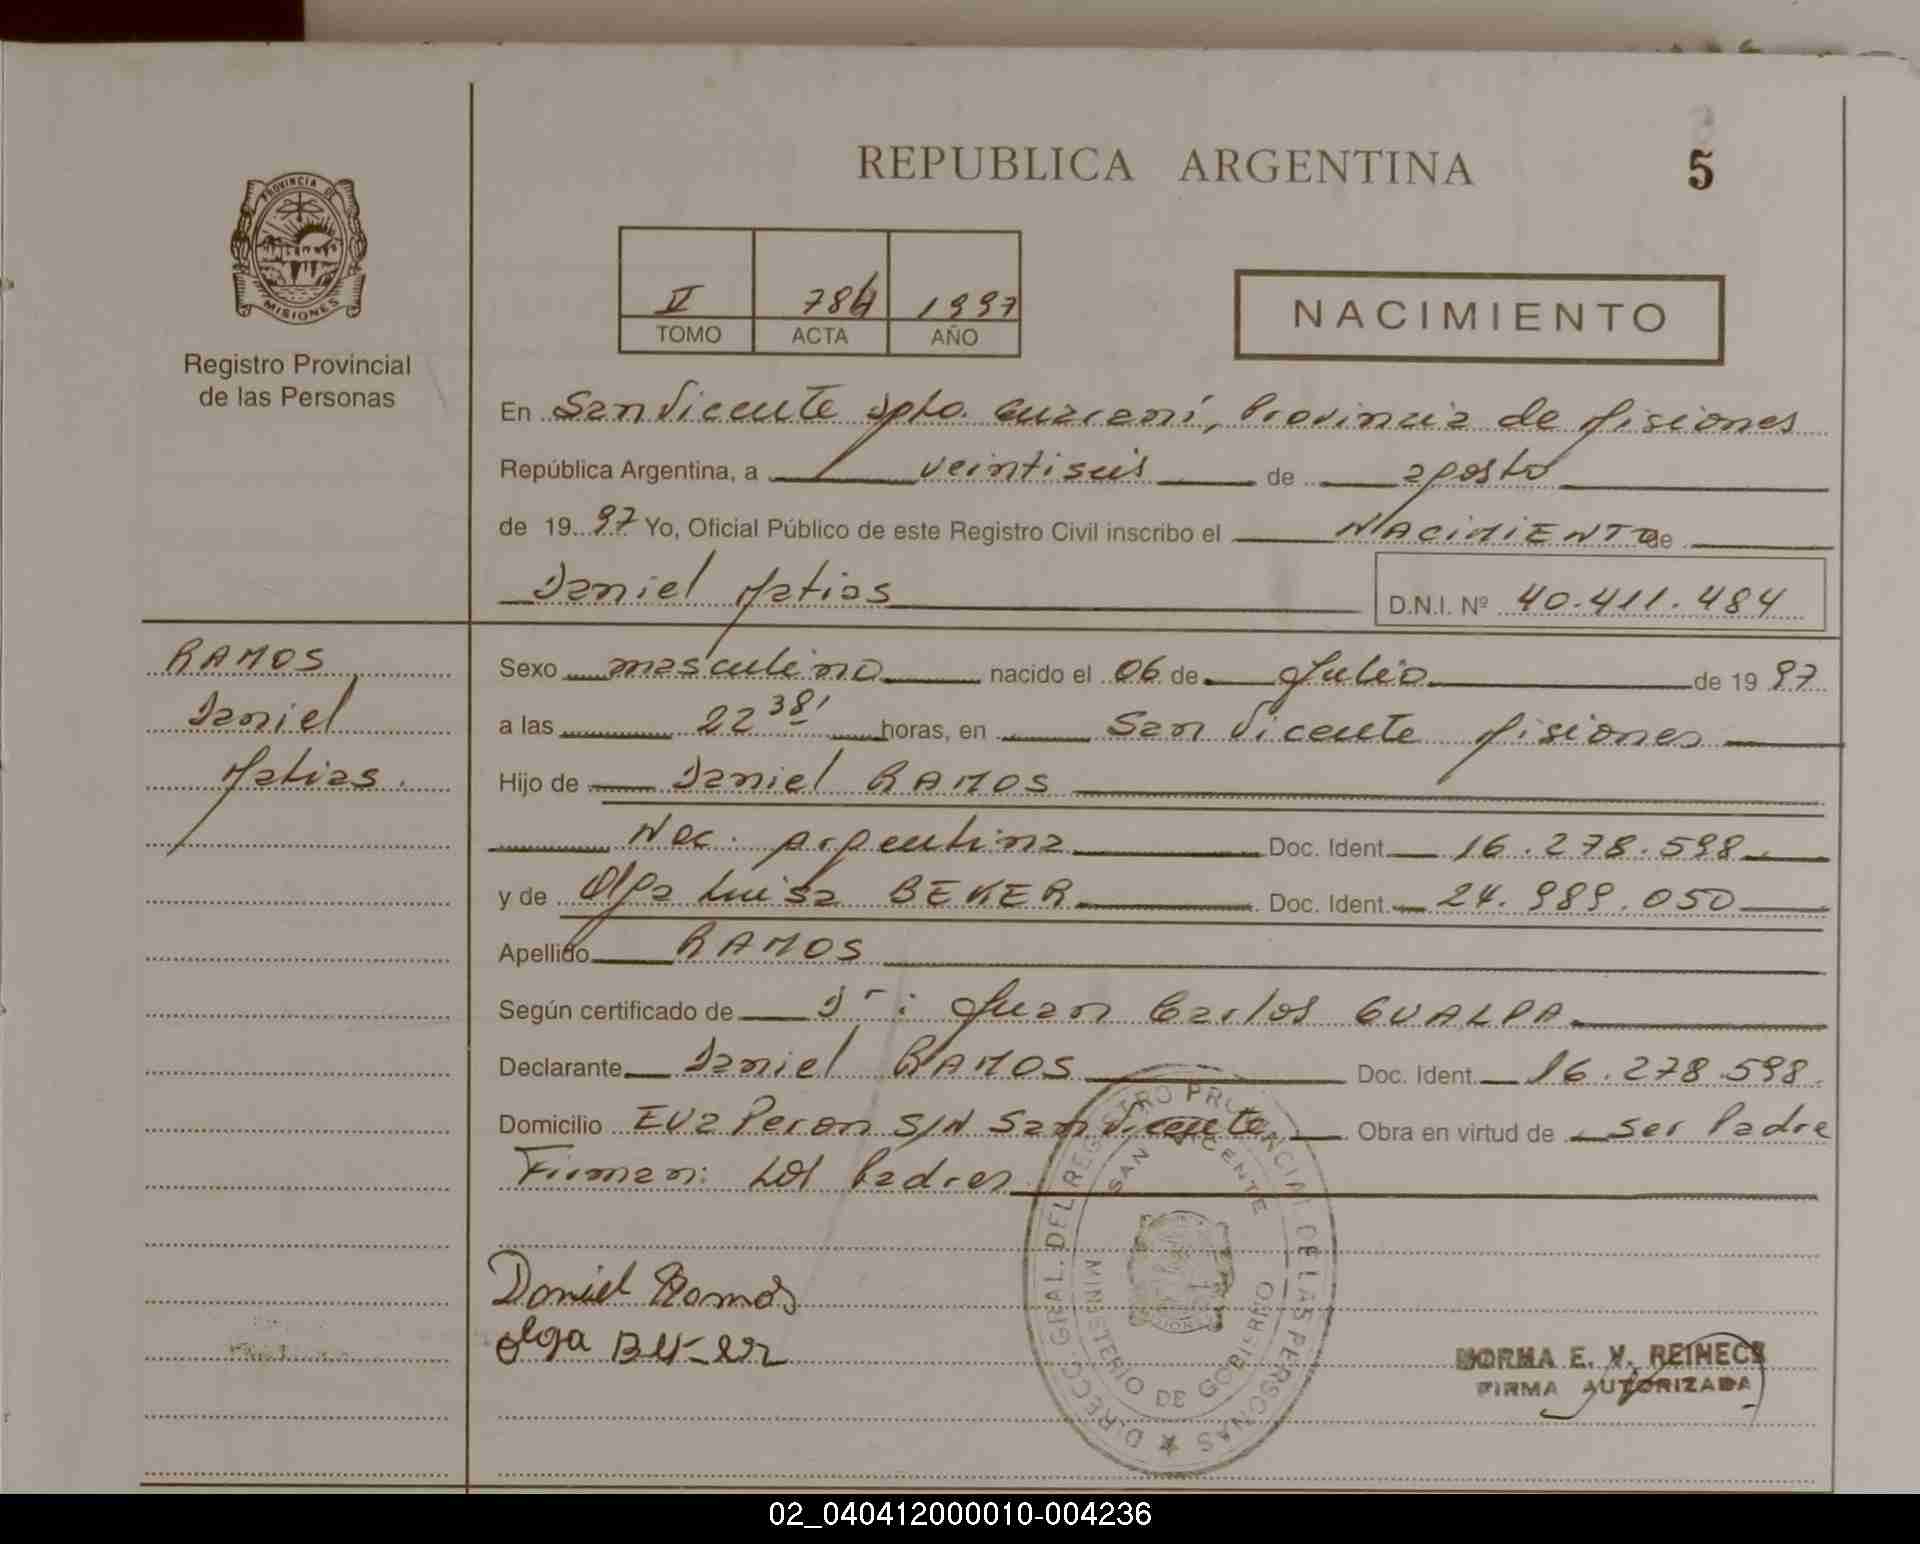 REPUBLICA ARGENTINA
5
PROVINCIA DE
MISIONES
Registro Provincial
de las Personas
II 784 1997
TOMO ACTA AÑO
NACIMIENTO
En San Vicente Dpto. Guaraní, Provincia de Misiones
República Argentina, a veintiseis de agosto
de 1997 Yo, Oficial Público de este Registro Civil inscribo el NACIMIENTO de
Daniel Matias D.N.I. Nº 40.411.484
RAMOS
Daniel
Matias.
Sexo masculino nacido el 06 de Julio de 1997
a las 22 38' horas, en San Vicente Misiones
Hijo de Daniel RAMOS
Nac. Argentina Doc. Ident. 16.278.598
y de Olga Luisa BEKER Doc. Ident. 24.989.050
Apellido RAMOS
Según certificado de Dr: Juan Carlos GUALPA
Declarante Daniel RAMOS Doc. Ident. 16.278.598.
Domicilio Eva Peron S/N San Vicente Obra en virtud de ser Padre
Firman: Los Padres
Daniel Ramos
olga Beker
DIRECC. GRAL. DEL REGISTRO PROVINCIAL DE LAS PERSONAS
SAN VICENTE
MINISTERIO DE GOBIERNO
NORMA E. V. REINECK
FIRMA AUTORIZADA
02_040412000010-004236